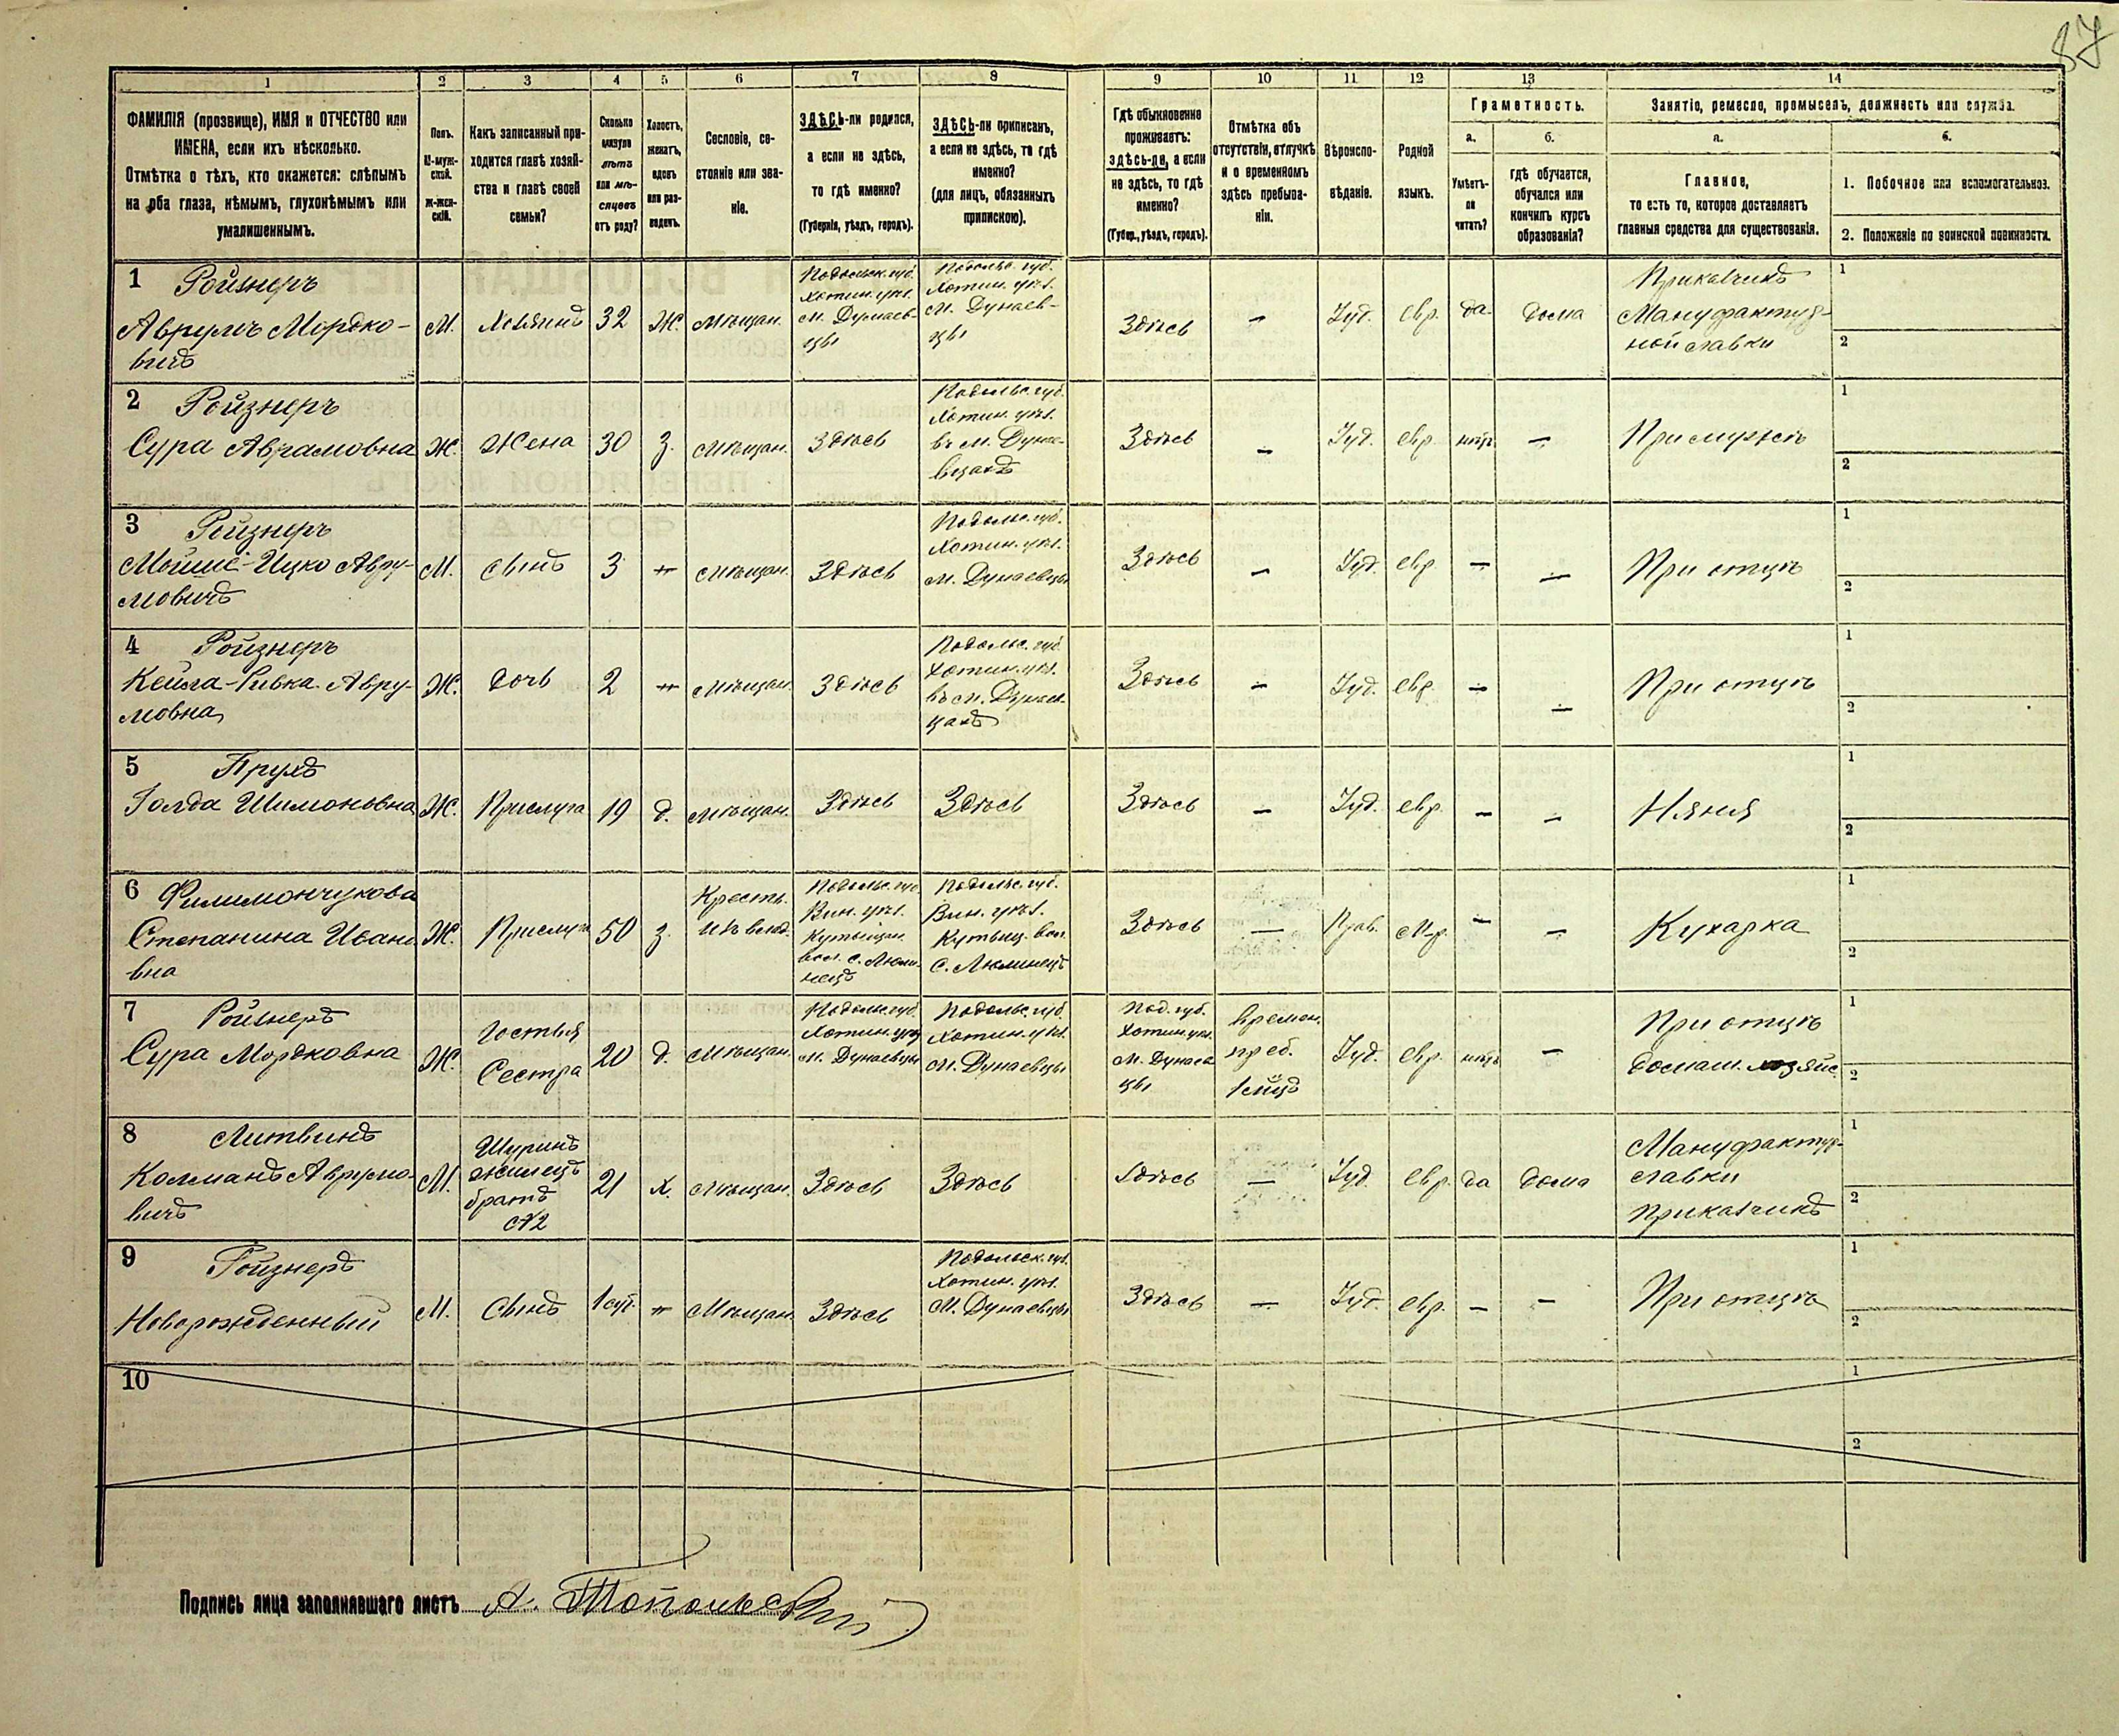 87
1 2 3 4 5 6 7 8 9 10 11 12 13 14
ФАМИЛІЯ (прозвище), ИМЯ и ОТЧЕСТВО или
ИМЕНА, если ихъ нѣсколько.
Отмѣтка о тѣхъ, кто окажется: слѣпымъ
на оба глаза, нѣмымъ, глухонѣмымъ или
умалишеннымъ.
Полъ.
М-муж-
ской.
Ж-жен-
скій.
Какъ записанный при-
ходится главѣ хозяй-
ства и главѣ своей
семьи?
Сколько
минуло
лѣтъ
или мѣ-
сяцевъ
отъ роду?
Холостъ,
женатъ,
вдовъ
или раз-
веденъ.
Сословіе, со-
стояніе или зва-
ніе.
ЗДѢСЬ-ли родился,
а если не здѣсь,
то гдѣ именно?
(Губернія, уѣздъ, городъ).
ЗДѢСЬ-ли приписанъ,
а если не здѣсь, то гдѣ
именно?
(для лицъ, обязанныхъ
припискою).
Гдѣ обыкновенно
проживаетъ:
здѣсь-ли, а если
не здѣсь, то гдѣ
именно?
(Губер., уѣздъ, городъ).
Отмѣтка объ
отсутствіи, отлучкѣ
и о временномъ
здѣсь пребыва-
ніи.
Вѣроиспо-
вѣданіе.
Родной
языкъ.
Грамотность.
а.
Умѣетъ-
ли
читать?
б.
гдѣ обучается,
обучался или
кончилъ курсъ
образованія?
Занятіе, ремесло, промыселъ, должность или служба.
а.
Главное,
то есть то, которое доставляетъ
главныя средства для существованія.
б.
1. Побочное или вспомогательное.
2. Положеніе по воинской повинности.
1 Ройзнеръ
Аврумъ Мордко-
вичъ
М.
Хозяинъ
32
Ж.
Мѣщан.
Подольск. губ.
Хотин. уѣз.
м. Дунаев-
цы
Подольс. губ.
Хотин. уѣз.
м. Дунаев-
цы
Здѣсь
–
Іуд.
евр.
да
дома
Приказчикъ
Мануфактур-
ной лавки
1
2
2 Ройзнеръ
Сура Аврамовна
Ж.
Жена
30
з.
мѣщан.
Здѣсь
Подольс. губ.
Хотин. уѣз.
въ м. Дунае-
вцахъ
Здѣсь
–
Іуд.
евр.
нѣтъ
–
При мужѣ
1
2
3 Ройзнеръ
Мойше-Ицко Авру-
мовичъ
М.
сынъ
3
–
мѣщан.
Здѣсь
Подольс. губ.
Хотин. уѣз.
м. Дунаевцы
Здѣсь
–
Іуд.
евр.
–
–
При отцѣ
1
2
4 Ройзнеръ
Кейла-Ривка Авру-
мовна
Ж.
дочь
2
–
мѣщан.
Здѣсь
Подольс. губ.
Хотин. уѣз.
въ м. Дунаев-
цахъ
Здѣсь
–
Іуд.
евр.
–
–
При отцѣ
1
2
5 Прухъ
Голда Шимоновна
Ж.
Прислуга
19
д.
мѣщан.
Здѣсь
Здѣсь
Здѣсь
–
Іуд.
евр.
–
–
Няня
1
2
6 Филимончукова
Степанина Ивано-
вна
Ж.
Прислуга
50
з.
Кресть.
изъ влад.
Подольс. губ.
Вин. уѣз.
Кутыщан.
вол. с. Люли-
нецъ
Подольс. губ.
Вин. уѣз.
Кутыщ. вол.
с. Люлинецъ
Здѣсь
–
Прав.
М-р.
–
–
Кухарка
1
2
7 Ройзнеръ
Сура Мордковна
Ж.
Гостья
Сестра
20
д.
мѣщан.
Подольс. губ.
Хотин. уѣз.
м. Дунаевцы
Подольс. губ.
Хотин. уѣз.
м. Дунаевцы
Под. губ.
Хотин. уѣз.
м. Дунаев-
цы
времен.
преб.
Іуд.
евр.
нѣтъ
–
При отцѣ
домаш. хозяйс.
1
2
8 Литвинъ
Колманъ Аврумо-
вичъ
М.
Шуринъ
жилецъ
братъ
№2
21
х.
мѣщан.
Здѣсь
Здѣсь
Здѣсь
–
Іуд.
евр.
да
дома
Мануфактур-
лавки
приказчикъ
1
2
9 Ройзнеръ
Новорожденный
М.
Сынъ
1 сут.
–
Мѣщан.
Здѣсь
Подольск. губ.
Хотин. уѣз.
м. Дунаевцы
Здѣсь
–
Іуд.
евр.
–
–
При отцѣ
1
2
10
1
2
Подпись лица заполнявшаго листъ А. Топольскій